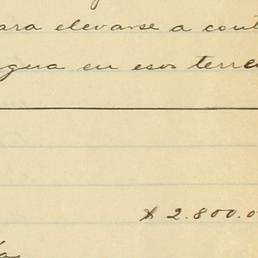 para elevarse a cont
agua en esos terre
$ 2.800.0